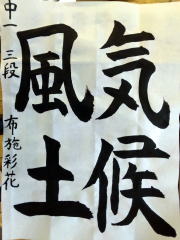 気候
風土
中一 三段 布施彩花